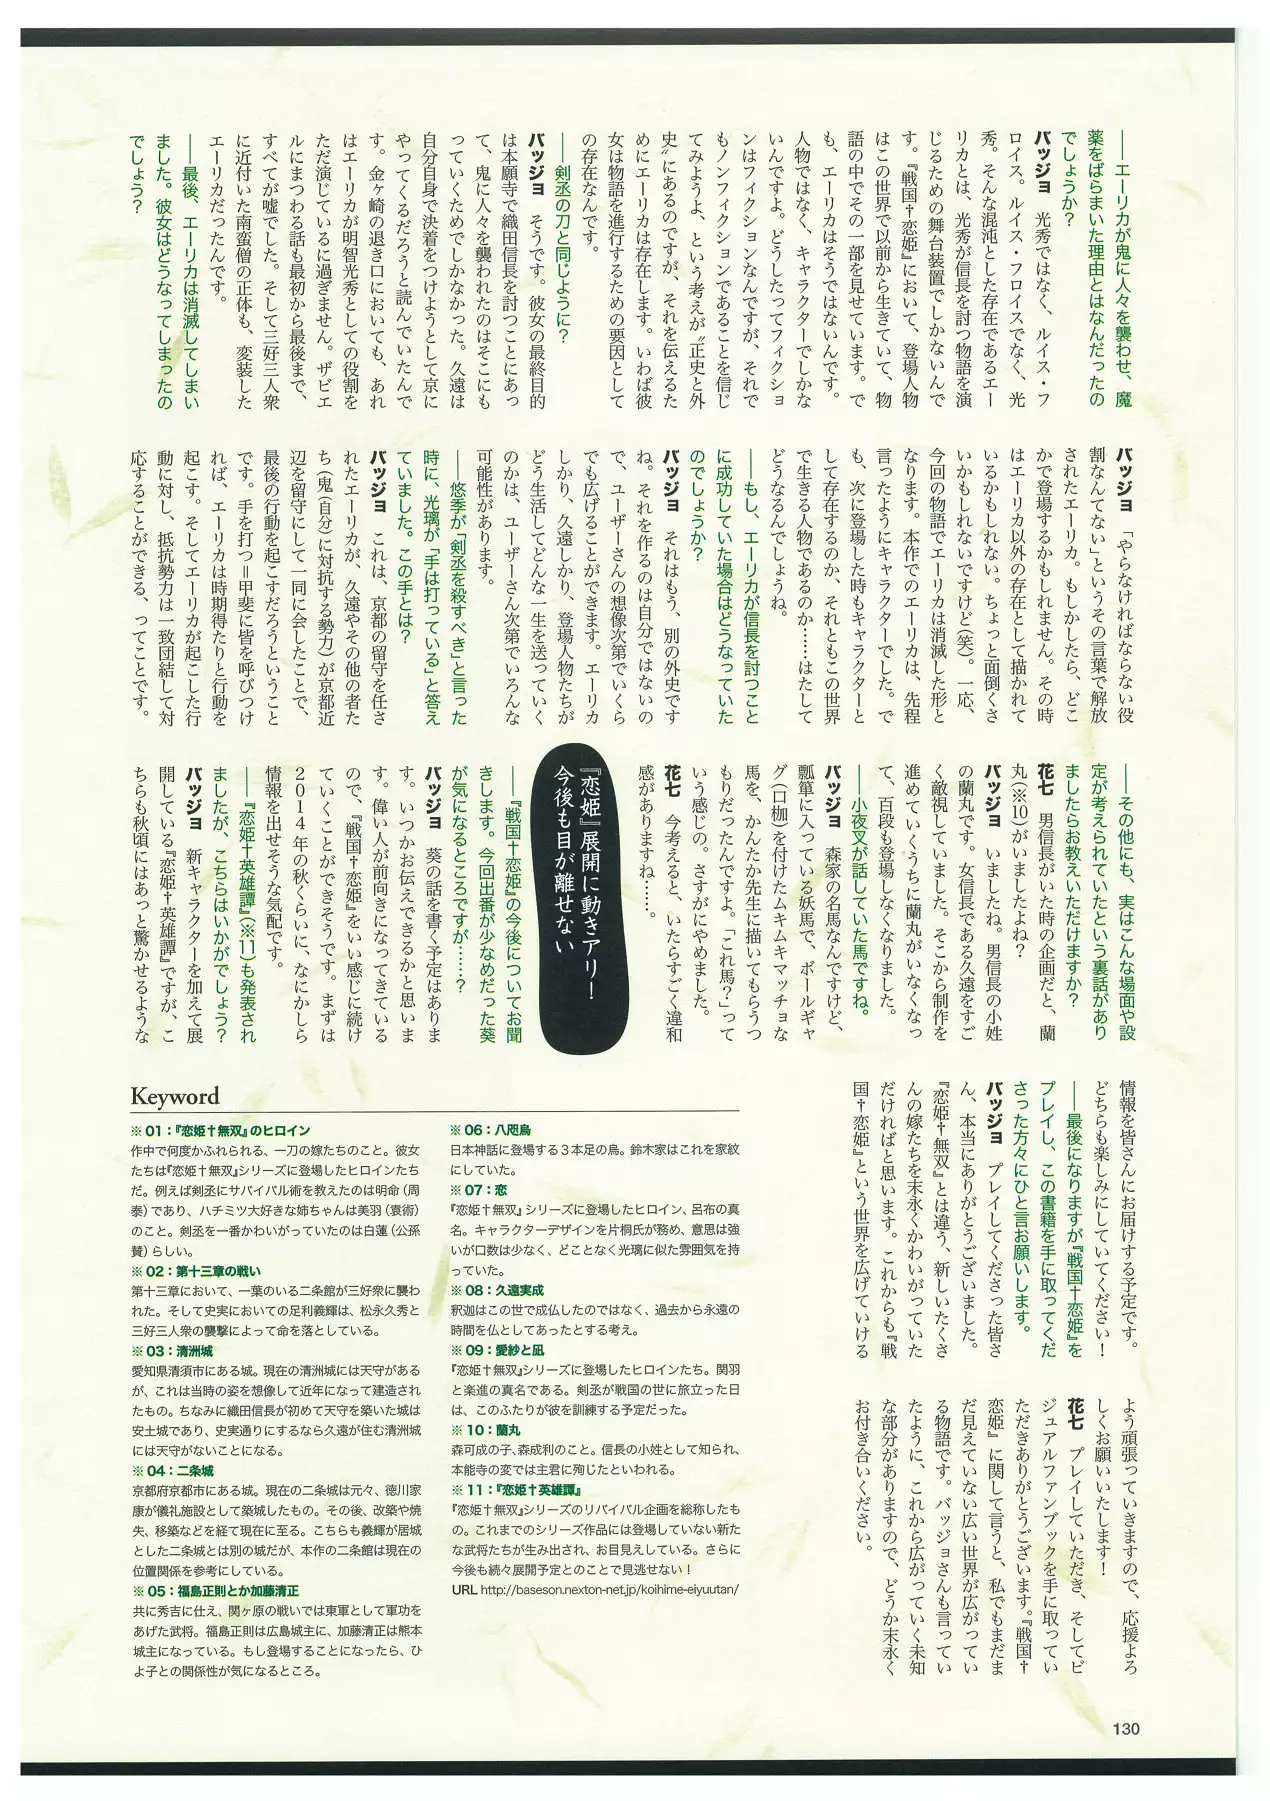 ――エーリカが鬼に人々を襲わせ、魔
薬をばらまいた理由とはなんだったの
でしょうか？
バッジョ　光秀ではなく、ルイス・フ
ロイス。ルイス・フロイスでなく、光
秀。そんな混沌とした存在であるエー
リカとは、光秀が信長を討つ物語を演
じるための舞台装置でしかないんで
す。『戦国†恋姫』において、登場人物
はこの世界で以前から生きていて、物
語の中でその一部を見せています。で
も、エーリカはそうではないんです。
人物ではなく、キャラクターでしかな
いんですよ。どうしたってフィクショ
ンはフィクションなんですが、それで
もノンフィクションであることを信じ
てみようよ、という考えが〝正史と外
史〟にあるのですが、それを伝えるた
めにエーリカは存在します。いわば彼
女は物語を進行するための要因として
の存在なんです。
――剣丞の刀と同じように？
バッジョ　そうです。彼女の最終目的
は本願寺で織田信長を討つことにあっ
て、鬼に人々を襲われたのはそこにも
っていくためでしかなかった。久遠は
自分自身で決着をつけようとして京に
やってくるだろうと読んでいたんで
す。金ヶ崎の退き口においても、あれ
はエーリカが明智光秀としての役割を
ただ演じているに過ぎません。ザビエ
ルにまつわる話も最初から最後まで、
すべてが嘘でした。そして三好三人衆
に近付いた南蛮僧の正体も、変装した
エーリカだったんです。
――最後、エーリカは消滅してしまい
ました。彼女はどうなってしまったの
でしょう？
バッジョ　「やらなければならない役
割なんてない」というその言葉で解放
されたエーリカ。もしかしたら、どこ
かで登場するかもしれません。その時
はエーリカ以外の存在として描かれて
いるかもしれない。ちょっと面倒くさ
いかもしれないですけど（笑）。一応、
今回の物語でエーリカは消滅した形と
なります。本作でのエーリカは、先程
言ったようにキャラクターでした。で
も、次に登場した時もキャラクターと
して存在するのか、それともこの世界
で生きる人物であるのか……はたして
どうなるんでしょうね。
――もし、エーリカが信長を討つこと
に成功していた場合はどうなっていた
のでしょうか？
バッジョ　それはもう、別の外史です
ね。それを作るのは自分ではないの
で、ユーザーさんの想像次第でいくら
でも広げることができます。エーリカ
しかり、久遠しかり、登場人物たちが
どう生活してどんな一生を送っていく
のかは、ユーザーさん次第でいろんな
可能性があります。
――悠季が「剣丞を殺すべき」と言った
時に、光璃が「手は打っている」と答え
ていました。この手とは？
バッジョ　これは、京都の留守を任さ
れたエーリカが、久遠やその他の者た
ち（鬼（自分）に対抗する勢力）が京都近
辺を留守にして一同に会したことで、
最後の行動を起こすだろうということ
です。手を打つ＝甲斐に皆を呼びつけ
れば、エーリカは時期得たりと行動を
起こす。そしてエーリカが起こした行
動に対し、抵抗勢力は一致団結して対
応することができる、ってことです。
――その他にも、実はこんな場面や設
定が考えられていたという裏話があり
ましたらお教えいただけますか？
花七　男信長がいた時の企画だと、蘭
丸（※10）がいましたよね？
バッジョ　いましたね。男信長の小姓
の蘭丸です。女信長である久遠をすご
く敵視していました。そこから制作を
進めていくうちに蘭丸がいなくなっ
て、百段も登場しなくなりました。
――小夜叉が話していた馬ですね。
バッジョ　森家の名馬なんですけど、
瓢箪に入っている妖馬で、ボールギャ
グ（口枷）を付けたムキムキマッチョな
馬を、かんたか先生に描いてもらうつ
もりだったんですよ。「これ馬？」って
いう感じの。さすがにやめました。
花七　今考えると、いたらすごく違和
感がありますね……。
『恋姫』展開に動きアリ！
今後も目が離せない
――『戦国†恋姫』の今後についてお聞
きします。今回出番が少なめだった葵
が気になるところですが……？
バッジョ　葵の話を書く予定はありま
す。いつかお伝えできるかと思いま
す。偉い人が前向きになってきている
ので、『戦国†恋姫』をいい感じに続け
ていくことができそうです。まずは
２０１４年の秋くらいに、なにかしら
情報を出せそうな気配です。
――『恋姫†英雄譚』（※11）も発表され
ましたが、こちらはいかがでしょう？
バッジョ　新キャラクターを加えて展
開している『恋姫†英雄譚』ですが、こ
ちらも秋頃にはあっと驚かせるような
情報を皆さんにお届けする予定です。
どちらも楽しみにしていてください！
――最後になりますが『戦国†恋姫』を
プレイし、この書籍を手に取ってくだ
さった方々にひと言お願いします。
バッジョ　プレイしてくださった皆さ
ん、本当にありがとうございました。
『恋姫†無双』とは違う、新しいたくさ
んの嫁たちを末永くかわいがっていた
だければと思います。これからも『戦
国†恋姫』という世界を広げていける
よう頑張っていきますので、応援よろ
しくお願いいたします！
花七　プレイしていただき、そしてビ
ジュアルファンブックを手に取ってい
ただきありがとうございます。『戦国†
恋姫』に関して言うと、私でもまだま
だ見えていない広い世界が広がってい
る物語です。バッジョさんも言ってい
たように、これから広がっていく未知
な部分がありますので、どうか末永く
お付き合いください。
Keyword
※01：『恋姫†無双』のヒロイン
作中で何度かふれられる、一刀の嫁たちのこと。彼女
たちは『恋姫†無双』シリーズに登場したヒロインたち
だ。例えば剣丞にサバイバル術を教えたのは明命（周
泰）であり、ハチミツ大好きな姉ちゃんは美羽（袁術）
のこと。剣丞を一番かわいがっていたのは白蓮（公孫
賛）らしい。
※02：第十三章の戦い
第十三章において、一葉のいる二条館が三好衆に襲わ
れた。そして史実においての足利義輝は、松永久秀と
三好三人衆の襲撃によって命を落としている。
※03：清洲城
愛知県清須市にある城。現在の清洲城には天守がある
が、これは当時の姿を想像して近年になって建造され
たもの。ちなみに織田信長が初めて天守を築いた城は
安土城であり、史実通りにするなら久遠が住む清洲城
には天守がないことになる。
※04：二条城
京都府京都市にある城。現在の二条城は元々、徳川家
康が儀礼施設として築城したもの。その後、改築や焼
失、移築などを経て現在に至る。こちらも義輝が居城
とした二条城とは別の城だが、本作の二条館は現在の
位置関係を参考にしている。
※05：福島正則とか加藤清正
共に秀吉に仕え、関ヶ原の戦いでは東軍として軍功を
あげた武将。福島正則は広島城主に、加藤清正は熊本
城主になっている。もし登場することになったら、ひ
よ子との関係性が気になるところ。
※06：八咫烏
日本神話に登場する３本足の烏。鈴木家はこれを家紋
にしていた。
※07：恋
『恋姫†無双』シリーズに登場したヒロイン、呂布の真
名。キャラクターデザインを片桐氏が務め、意思は強
いが口数は少なく、どことなく光璃に似た雰囲気を持
っていた。
※08：久遠実成
釈迦はこの世で成仏したのではなく、過去から永遠の
時間を仏としてあったとする考え。
※09：愛紗と凪
『恋姫†無双』シリーズに登場したヒロインたち。関羽
と楽進の真名である。剣丞が戦国の世に旅立った日
は、このふたりが彼を訓練する予定だった。
※10：蘭丸
森可成の子、森成利のこと。信長の小姓として知られ、
本能寺の変では主君に殉じたといわれる。
※11：『恋姫†英雄譚』
『恋姫†無双』シリーズのリバイバル企画を総称したも
の。これまでのシリーズ作品には登場していない新た
な武将たちが生み出され、お目見えしている。さらに
今後も続々展開予定とのことで見逃せない！
URL http://baseson.nexton-net.jp/koihime-eiyuutan/
130